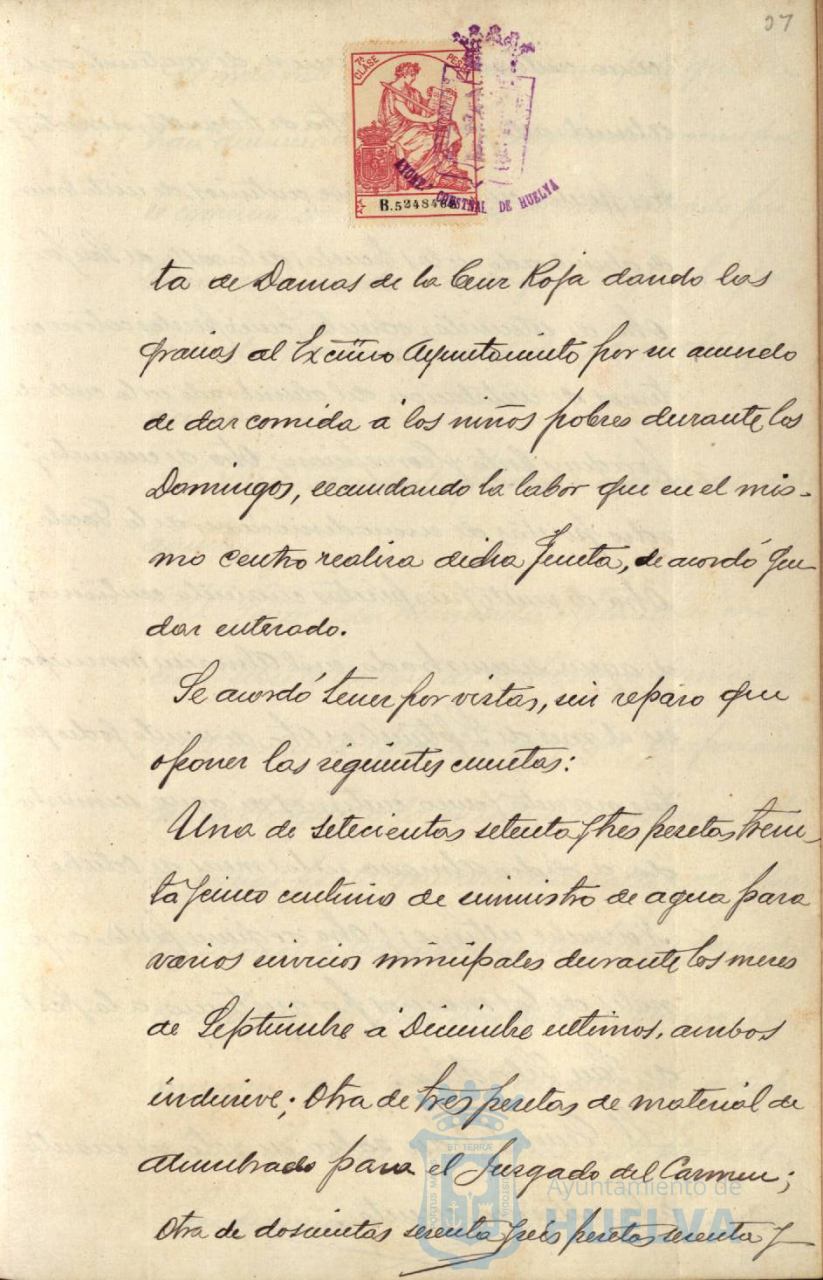 37
7ª CLASE PESETA
B.5248468
AYUNTº CONSTNAL DE HUELVA
ta de Damas de la Cruz Roja dando las
gracias al Excmo Ayuntamiento por su acuerdo
de dar comida á los niños pobres durante los
Domingos, secundando la labor que en el mis-
mo centro realiza dicha Junta, se acordó que
dar enterado.
Se acordó tener por vistas, sin reparo que
oponer las siguientes cuentas:
Una de setecientas setenta y tres pesetas trein-
ta y cinco centimos de suministro de agua para
varios servicios municipales durante los meses
de Septiembre á Diciembre ultimos, ambos
inclusive; Otra de tres pesetas de material de
alumbrado para el Juzgado del Carmen;
Otra de doscientas sesenta y seis pesetas sesenta y
Ayuntamiento de
HUELVA